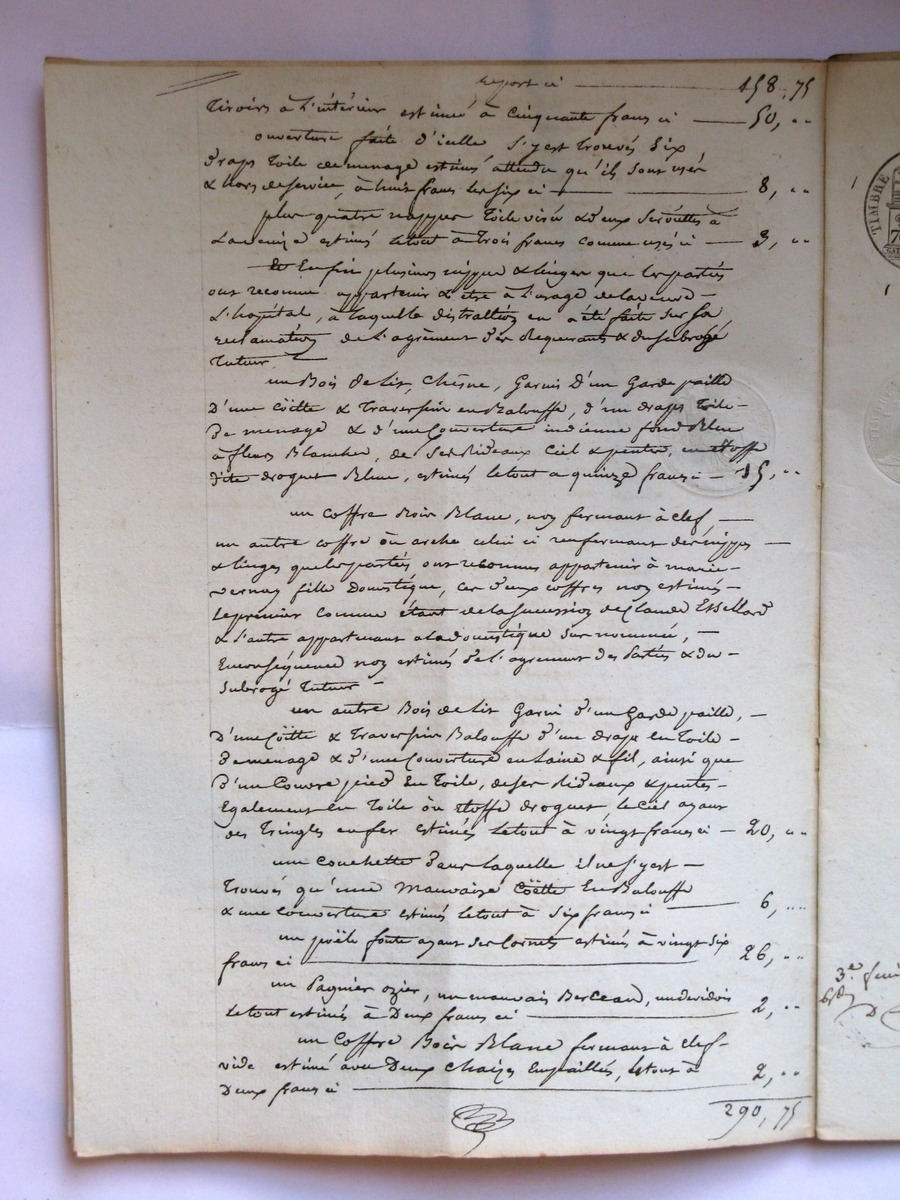 Report ci 158, 75
tiroirs à l'intérieur estimé à cinquante francs ci 50, "
ouverture faite d'icelle s'y est trouvés six
draps toile de menage estimés attendu qu'ils sont usés
& hors de service, à huit francs les six ci 8, "
plus quatre nappes toile & deux serviettes à
estimés le tout à trois francs comme usés ci 3, "
Et Enfin plusieurs nippes & linges que les parties
ont reconnu appartenir & être à l'usage de la veuve
L'hopital, à laquelle distraction en a été faite sur sa
reclamation de l'agrément des Requerants & du subrogé
tuteur.
un Bois de Lit, Chêsne, Garnis d'un Garde paille
D'une Coëtte & Traversin en Balouffe, d'un draps toile
De menage & d'une Couverture indienne fond Bleue
à fleurs Blanches, de ses Rideaux Ciel & pentes, en étoffe
dite droguet Bleue, estimés le tout a quinze francs ci 15, "
un coffre Bois Blanc, non fermant à clef,
un autre coffre ou arche celui ci renfermant des nippes
& linges que les parties ont reconnus appartenir à marie
vernay fille Domestique, ces deux coffres non estimés
Le premier comme étant de la succession de Claude Essellard
& l'autre appartenant a la domestique sur nommée,
En conséquence non estimés de l'agrement des Parties & du
Subrogé tuteur
un autre Bois de Lit Garni d'un Garde paille,
D'une Coëtte & Traversin Balouffe d'un draps en Toile
De menage & d'une Couverture en Laine & fil, ainsi que
D'un Couvre pied En Toile, de ses Rideaux & pentes
Egalement en Toile ou étoffe droguet le Ciel ayant
des Tringles en fer estimés le tout à vingt francs ci 20, "
une couchette dans laquelle il ne s'y est
Trouvés qu'une Mauvaise Coëtte En Balouffe
& une Couverture estimés le tout à Six francs ci 6, "
un poële fonte ayant ses Cornets estimés à vingt six
francs ci 26, "
un Pagnier ozier, un mauvais Berceau, un devidois
Le tout estimés à Deux francs ci 2, "
un Coffre Bois Blanc fermant à clef
vide estimé avec Deux Chaises Empaillés, le tout à
Deux francs ci 2, "
290, 75
TIMBRE
3e